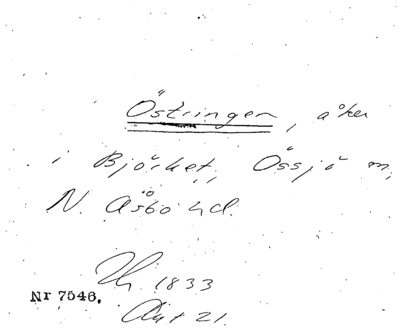 Östringen, åker
i Björket, Össjö m,
N. Åsbo hd.
1833
Nr 7546.
Akt 21.